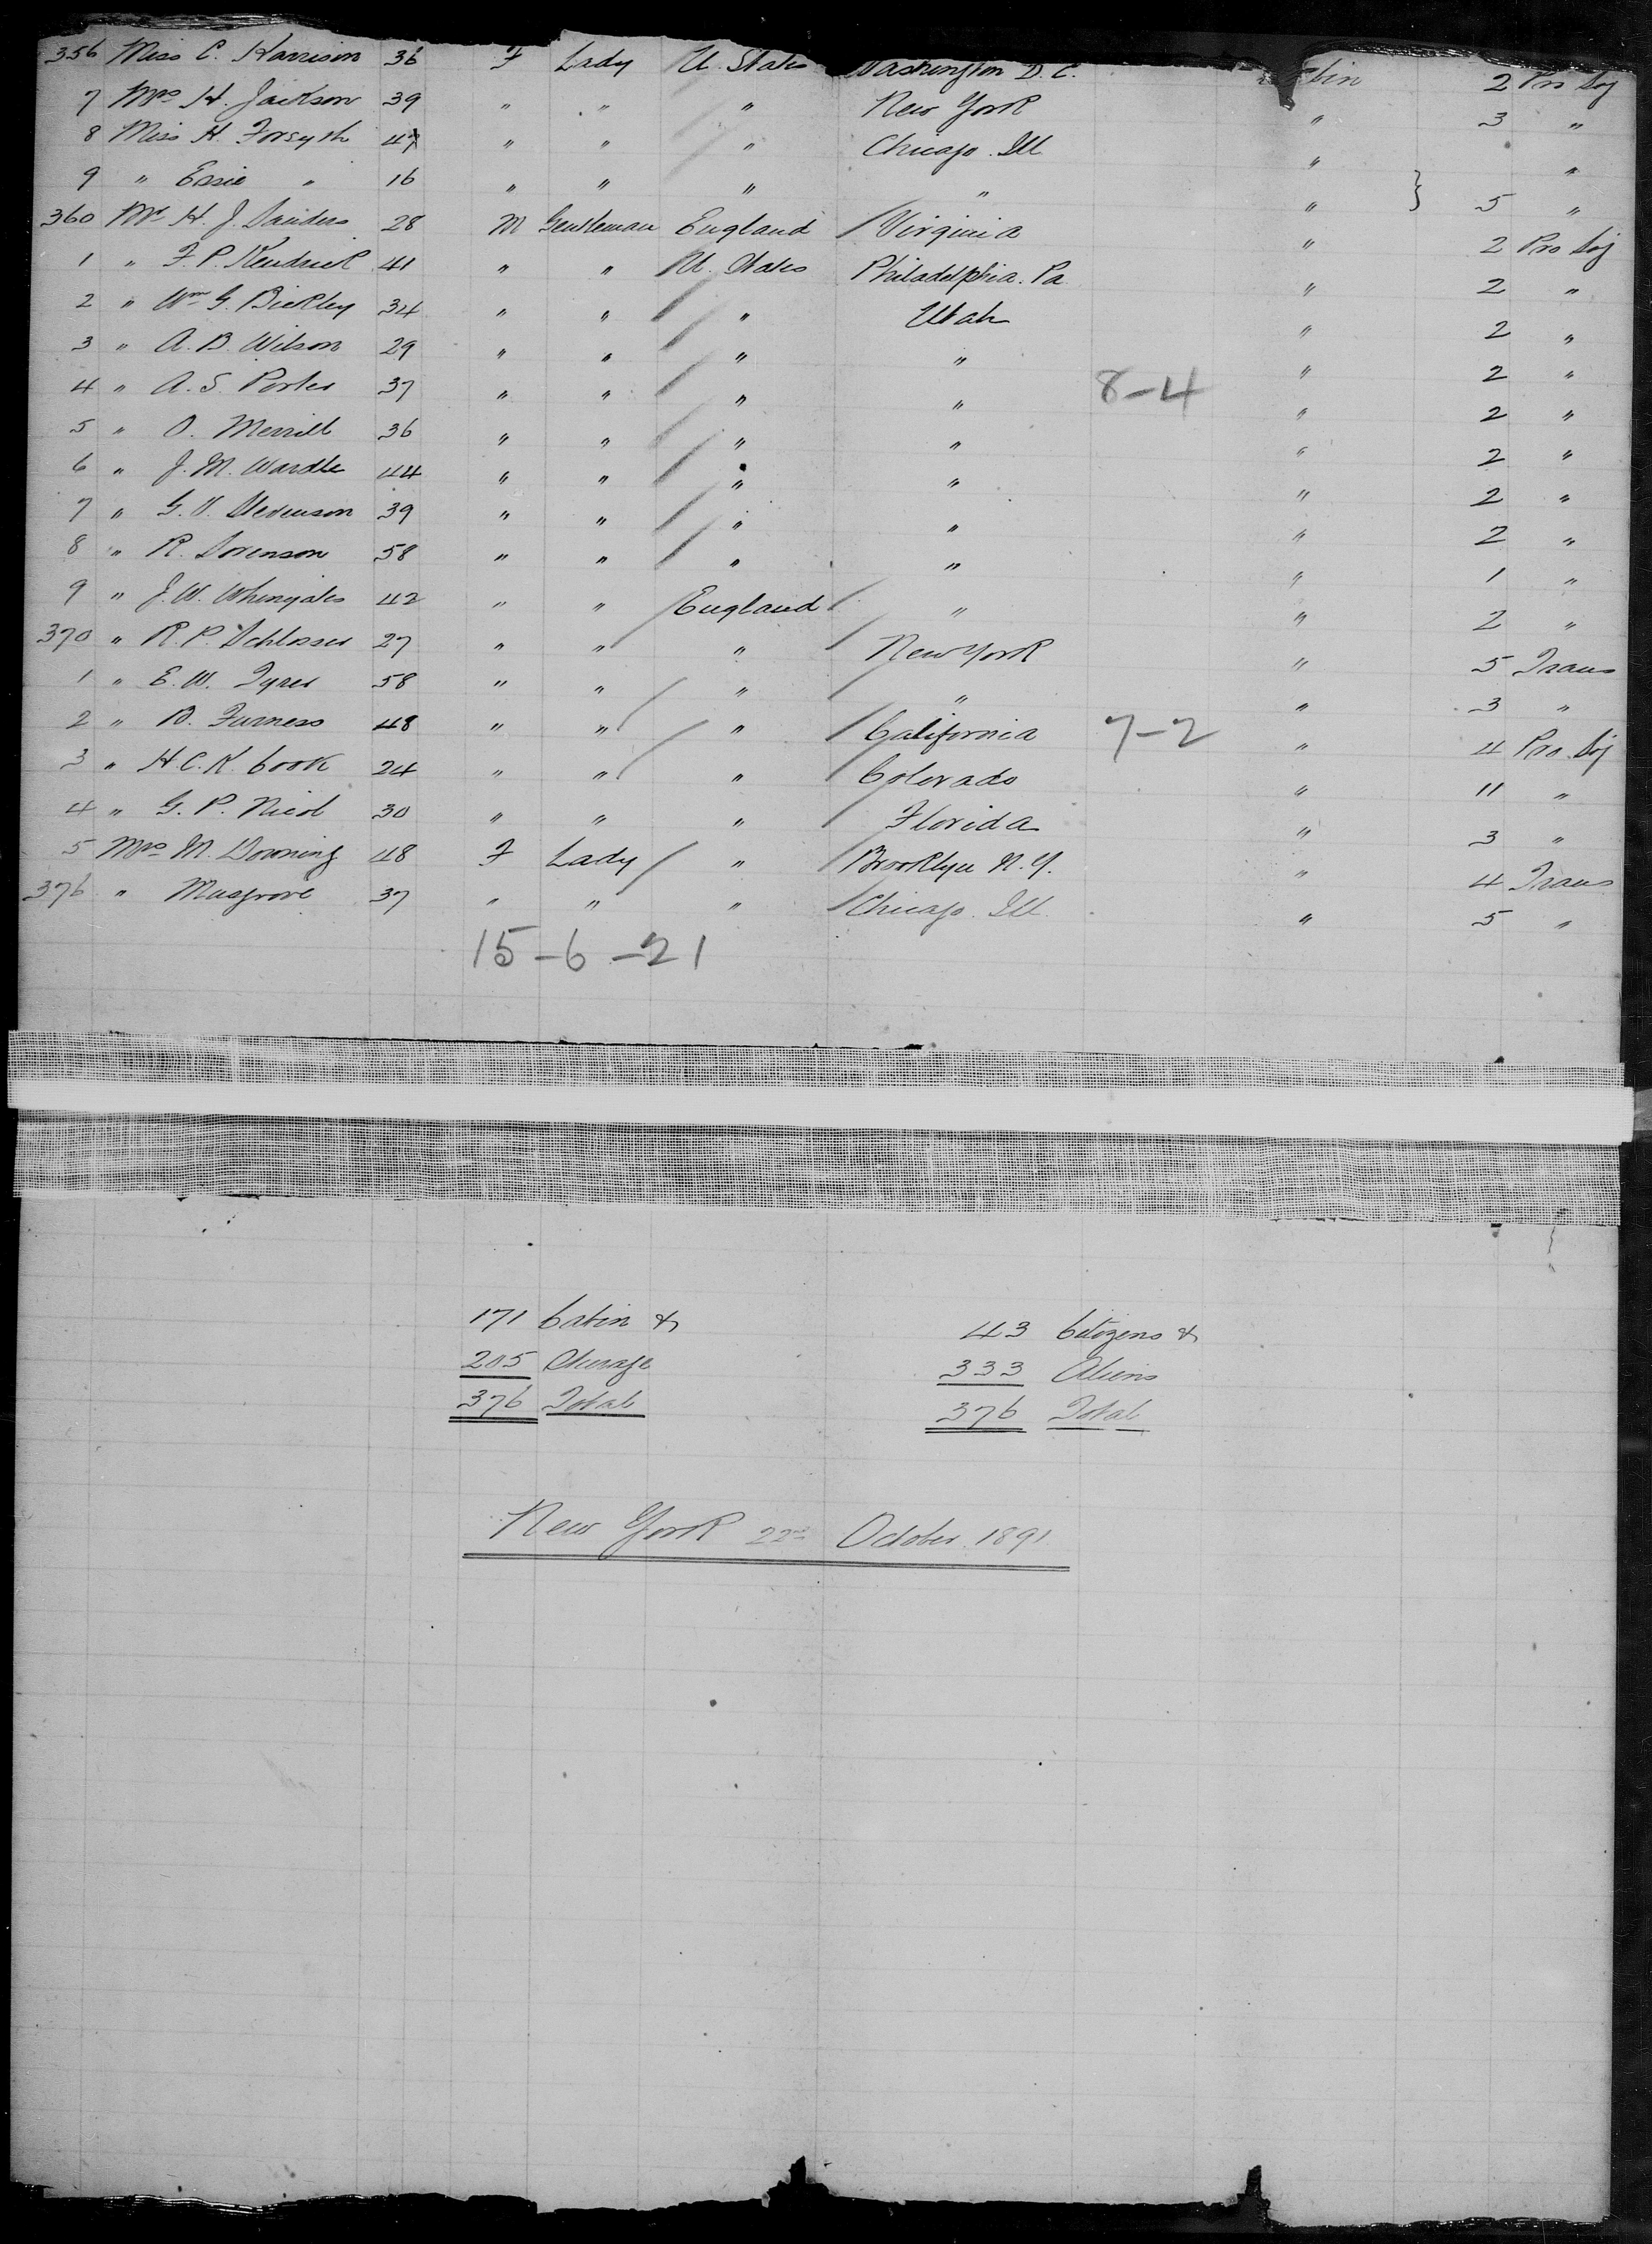 356 Miss C. Harrison 36 F Lady U. States Washington D.C. 2 Pro Soj
7 Mrs H. Jackson 39 " " " New York " 3 "
8 Miss H. Forsyth 47 " " " Chicago. Ill " "
9 " Essie " 16 " " " " " } 5 "
360 Mr H. J. Sanders 28 M Gentleman England Virginia " 2 Pro Soj
1 " F. P. Kendrick 41 " " U. States Philadelphia. Pa " 2 "
2 " Wm G. Bickley 34 " " " Utah " 2 "
3 " A. B. Wilson 29 " " " " " 2 "
4 " A. S. Porter 37 " " " " 8-4 " 2 "
5 " O. Merrill 36 " " " " " 2 "
6 " J. M. Wardle 44 " " " " " 2 "
7 " G. V. Stevenson 39 " " " " " 2 "
8 " R. Sorenson 58 " " " " " 1 "
9 " J. W. 42 " " England " " 2 "
370 " R. P. Schlosser 27 " " " New York " 5 Trans
1 " E. W. Tyrer 58 " " " " " 3 "
2 " B. Furness 48 " " " California 7-2 " 4 Pro Soj
3 " H. C. K. Cook 24 " " " Colorado " 11 "
4 " G. P. Nicol 30 " " " Florida " 3 "
5 Mrs M. Downing 48 F Lady " Brooklyn N.Y. " 4 Trans
376 " Musgrove 37 " " " Chicago. Ill. " 5 "
15-6-21
171 Cabin & 43 Citizens &
205 Steerage 333 Aliens
376 Total 376 Total
New York 22nd October 1891